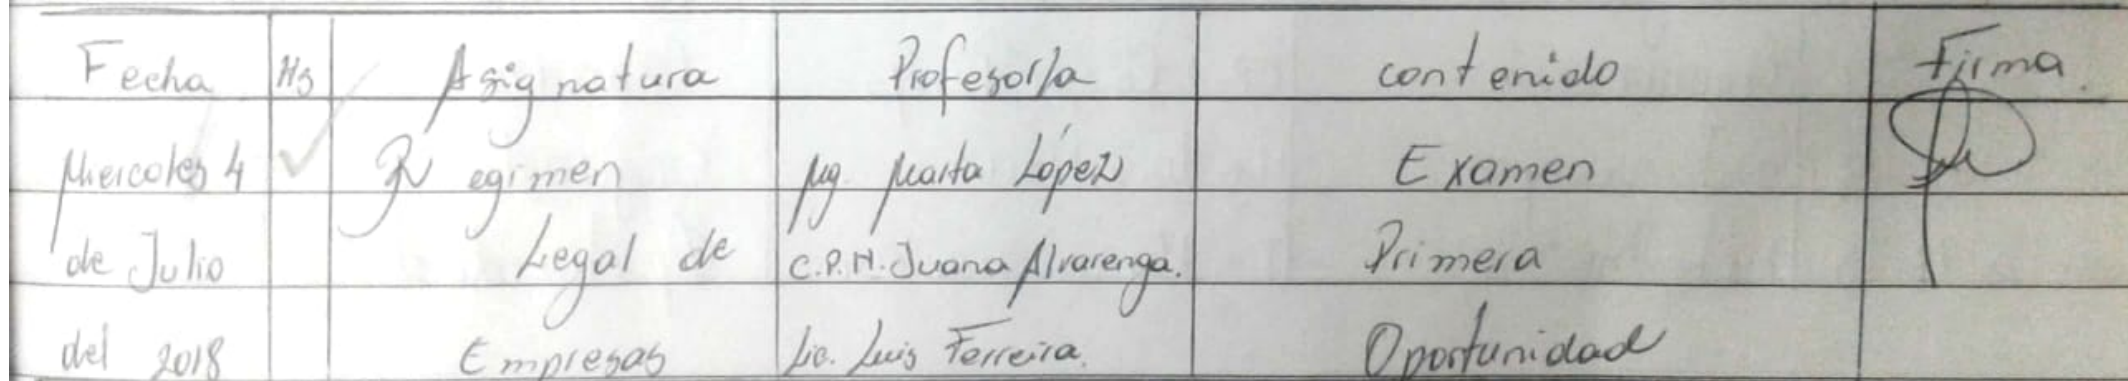 Fecha Hs Asignatura Profesor/a contenido Firma
Miercoles 4 Regimen Mg. Marta López Examen
de Julio Legal de C.P.N. Juana Alvarenga. Primera
del 2018 Empresas Lic. Luis Ferreira. Oportunidad